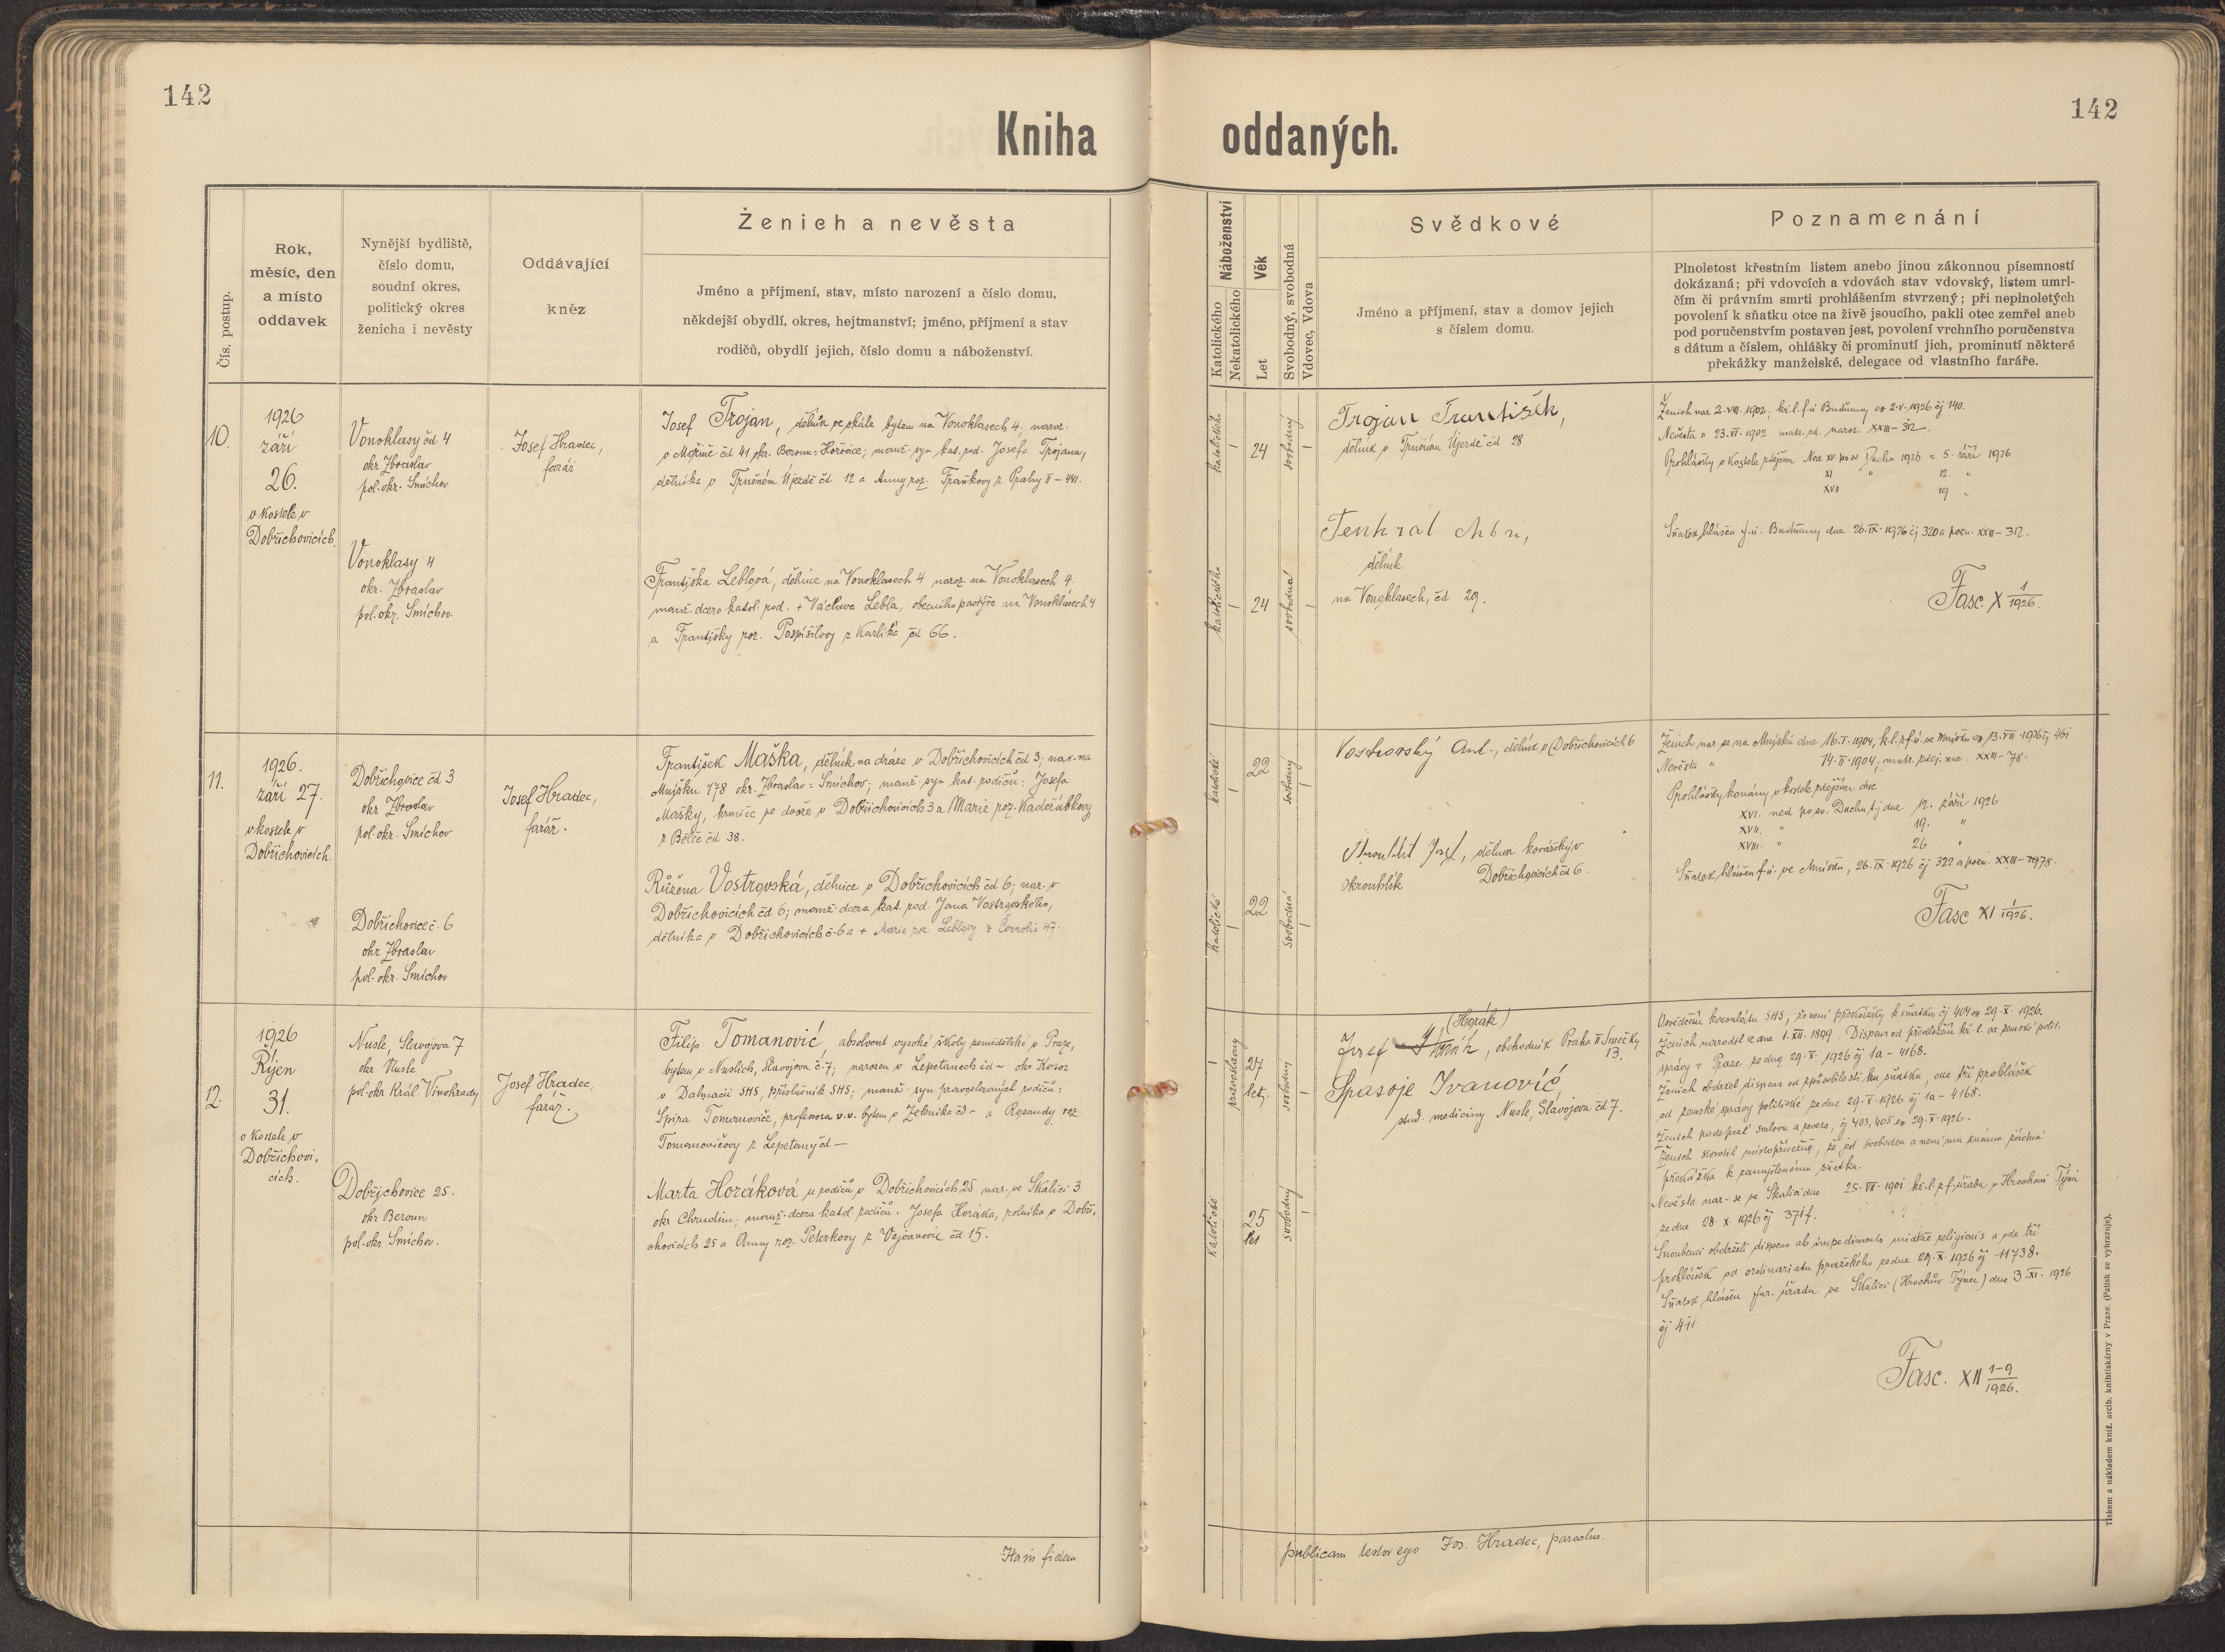 142
142
Kniha oddaných.
Čís. postup.
Rok,
měsíc, den
a místo
oddavek
Nynější bydliště,
číslo domu,
soudní okres,
politický okres
ženicha i nevěsty
Oddávající
kněz
Ženich a nevěsta
Jméno a příjmení, stav, místo narození a číslo domu,
někdejší obydlí, okres, hejtmanství; jméno, příjmení a stav
rodičů, obydlí jejich, číslo domu a náboženství.
Náboženství
Katolického
Nekatolického
Věk
Let
Svobodný, svobodná
Vdovec, Vdova
Svědkové
Jméno a příjmení, stav a domov jejich
s číslem domu.
Poznamenání
Plnoletost křestním listem anebo jinou zákonnou písemností
dokázaná; při vdovcích a vdovách stav vdovský, listem umrl-
čím či právním smrti prohlášením stvrzený; při neplnoletých
povolení k sňatku otce na živě jsoucího, pakli otec zemřel aneb
pod poručenstvím postaven jest, povolení vrchního poručenstva
s dátum a číslem, ohlášky či prominutí jich, prominutí některé
překážky manželské, delegace od vlastního faráře.
10.
1926
září
26.
v kostele v
Dobřichovicích.
Vonoklasy čd 4
okr Zbraslav
pol. okr. Smíchov
Vonoklasy 4
okr. Zbraslav
pol. okr. Smíchov.
Josef Hradec,
farář
Josef Trojan, dělník ve skále bytem na Vonoklasech 4; naroz.
v Mořině čd 41 okr. Beroun = Hořovice; manž. syn kat. rod. Josefa Trojana,
dělníka v Trněném Újezdě čd 12 a Anny roz. Fraňkovy z Prahy II – 441.
Františka Leblová, dělnice na Vonoklasech 4 naroz na Vonoklasech 4.
manž. dcera katol. rod. + Václava Lebla, obecního pastýře na Vonoklasech 4
a Františky roz. Pospíšilovy z Karlíka čd 66.
katolické
24
svobodný
katolické
24
svobodná
Trojan František,
dělník v Trněném Újezdě čd 28
Tenkrát
dělník
na Vonoklasech, čd 29.
Ženich nar 2. VIII. 1902; kř. l. f. ú Budňany 2. V. 1926 čj 140.
Nevěsta " 23. VI. 1902 matr. zd. naroz. XXIII – 312 –.
Prohlášky v kostele zdejším Ned. XV. po sv Duchu 1926 = 5. září 1926
XI " 12. "
XVII 19 "
Sňatek hlášen f. ú. Budňany dne 26. IX. 1926 čj 320 a pozn. XXIII – 312.
Fasc. X 1/1926.
11.
1926.
září 27.
v kostele v
Dobřichovicích.
Dobřichovice čd 3
okr Zbraslav
pol. okr. Smíchov
Dobřichovice č. 6
okr Zbraslav
pol. okr. Smíchov
Josef Hradec,
farář.
František Maška, dělník na dráze v Dobřichovicích čd 3; nar. na
Mníšku 178 okr. Zbraslav = Smíchov; manž. syn kat. rodičů: Josefa
Mašky, krmiče ve dvoře v Dobřichovicích 3 a Marie roz. Kadeřábkovy
z Bělče čd 38.
Růžena Vostrovská, dělnice v Dobřichovicích čd 6; nar. v
Dobřichovicích čd 6; manž. dcera kat. rod. Jana Vostrovského,
dělníka v Dobřichovicích č. 6 a + Marie roz. Leblovy z Černolic 47.
katolické
22
svobodný
katolické
22
svobodná
Vostrovský Ant., dělník v Dobřichovicích 6
Okrouhlík Josef, dělník kovářský v
Okrouhlík Dobřichovicích čd 6.
Ženich nar. se na Mníšku dne 16. V. 1904, k. l. z f. ú. ve Mníšku 13. VII. 1926 čj 461
Nevěsta " 14. II. 1904; matr. zdej. nar. XXIII – 78.
Prohlášky konány v kostele zdejším dne
XVI. ned po sv. Duchu t. j dne 12. září 1926
XVII. " 19. "
XVIII. " 26 "
Sňatek hlášen f. ú. ve Mníšku, 26. IX. 1926 čj 322 a pozn. XXIII – 78.
Fasc XI 1/1926.
12.
1926
Říjen
31.
v kostele v
Dobřichovi-
cích.
Nusle, Slavojova 7
okr Nusle
pol. okr Král. Vinohrady
Dobřichovice 25.
okr Beroun
pol. okr Smíchov.
Josef Hradec,
farář.
Filip Tomanović, absolvent vysoké školy zemědělské v Praze,
bytem v Nuslích, Slavojova č. 7; narozen v Lepetanech čd – okr Kotor
v Dalmacii SHS, příslušník SHS; manž. syn pravoslavných rodičů:
Spira Tomanoviče, profesora v. v. bytem v Zelenika čd – a Rosandy roz
Tomanovičovy z Lepetany čd –
Marta Horáková u rodičů v Dobřichovicích 25 nar. ve Skalici 3
okr Chrudim; manž. dcera katol. rodičů. Josefa Horáka, rolníka v Dobři-
chovicích 25 a Anny roz. Peterkovy z Vejvanovic čd 15.
pravoslavný
27
let.
svobodný
katolické
25
let
svobodný
(Horák)
Josef , obchodník Praha II Smečky
13.
Spasoje Ivanović,
stud. mediciny Nusle, Slavojova čd 7.
Osvědčení konsulátu SHS, že není překážky k sňatku čj 404 29. X. 1926.
Ženich narodil se dne 1. XII. 1899. Dispens od předložení kř. l. od zemské polit.
správy v Praze ze dne 29. X. 1926 čj 1a – 4168.
Ženich obdržel dispens od způsobilosti ku sňatku, ode tří prohlášek
od zemské správy politické ze dne 29. X. 1926 čj 1a – 4168.
Ženich podepsal smlouvu a revers, čj 403, 405 29. X. 1926.
Ženich stvrdil místopřísežně, že jest svoboden a není mu známa žádná
překážka k zamýšlenému sňatku.
Nevěsta nar. se ve Skalici dne 25. VII. 1901 kř. l. z f. úřadu v Hrochově Týnci
ze dne 28. X. 1926 čj 371 f.
Snoubenci obdrželi dispens ab impedimento mixtae religionis a ode tří
prohlášek od ordinariatu pražského ze dne 29. X. 1926 čj – 11738.
Sňatek hlášen far. úřadu ve Skalici (Hrochův Týnec) dne 3. XI. 1926
čj 411
Fasc. XII 1–9/1926.
Ita in fidem
publicam testor ego Jos. Hradec, parochus.
Tiskem a nákladem kníž. arcib. knihtiskárny v Praze. (Patisk se vyhrazuje).